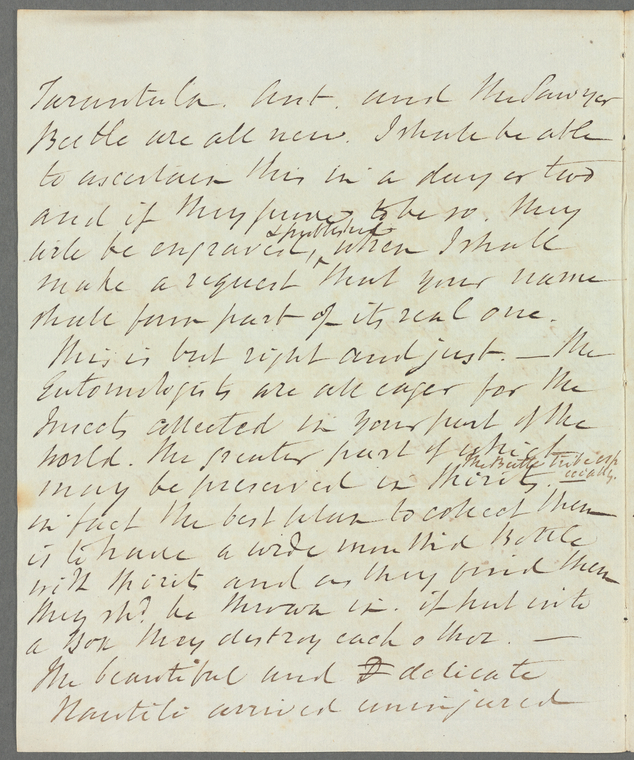 Tarantula. Ant. and the Sawyer
Beetle are all new. I shall be able
to ascertain this in a day or two
and if they prove to be so. they
will be engraved & published, when I shall
make a request that your name
shall form part of its real one.
This is but right and just. — The
Entomologists are all eager for the
Insects collected in your part of the
world. The greater part of which
may be preserved in spirits. the Beetle tribe especially.
in fact the best plan to collect them
is to have a wide mouthd Bottle
with spirits and as they find them
they shd. be thrown in. if put into
a Box they destroy each other. —
The beautiful and delicate
Nautili arrived uninjured